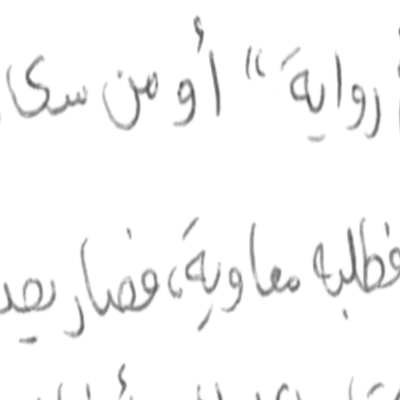 رواية" أو من سكا
فطلبه معاوية، فصار بعد